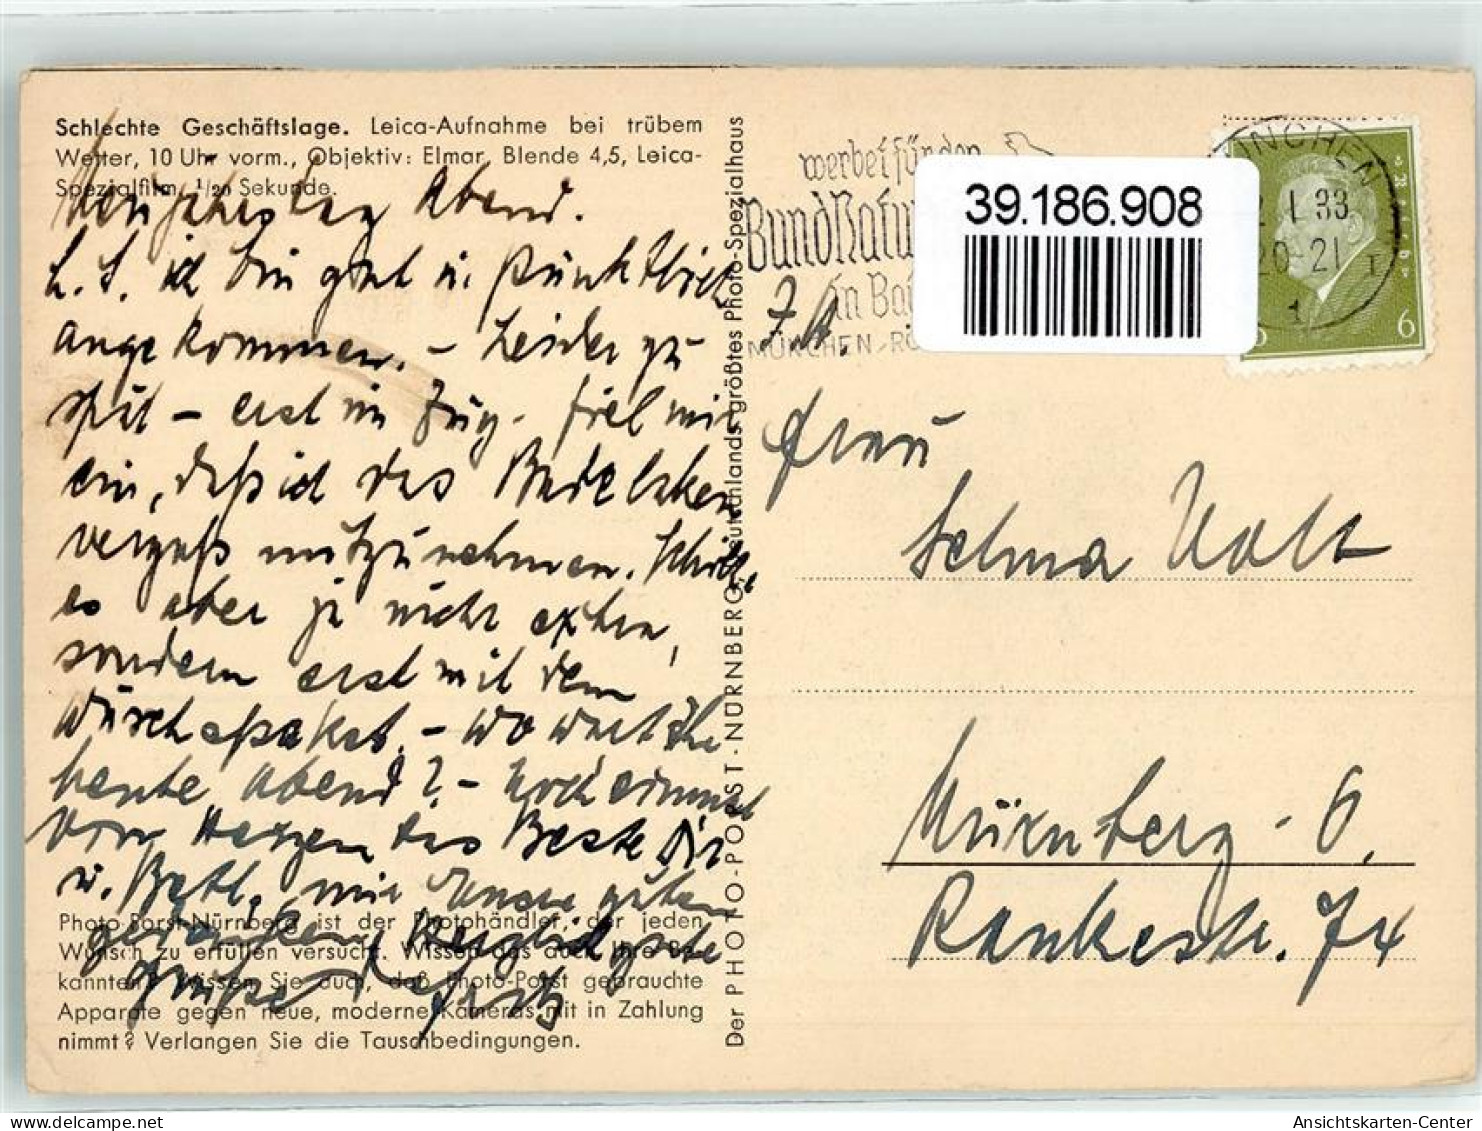 Schlechte Geschäftslage. Leica-Aufnahme bei trübem
Wetter, 10 Uhr vorm., Objektiv: Elmar, Blende 4,5, Leica-
Spezialfilm, 1/20 Sekunde.
Neujahrstag Abend.
L. S. ich bin gut u. pünktlich
angekommen. – Leider zu
spät – erst im Zug – fiel mir
ein, daß ich das Badelaken
vergaß mitzunehmen. Schicke
es aber ja nicht extra,
sondern erst mit dem
Wäschepaket. – Wo wart Ihr
heute Abend? – Noch einmal
vom Herzen das Beste Dir
u. Betl,
guten
grüße
Fritz
Photo-Porst-Nürnberg ist der Photohändler, der jeden
Wunsch zu erfüllen versucht. Wissen das auch Ihre Be-
kannten? Wissen Sie auch, daß Photo-Porst gebrauchte
Apparate gegen neue, moderne Kameras mit in Zahlung
nimmt? Verlangen Sie die Tauschbedingungen.
Der PHOTO-PORST · NÜRNBERG Deutschlands größtes Photo-Spezialhaus
werbet für den
Bund Natur
in Bay
MÜNCHEN, RÖ
39.186.908
MÜNCHEN
2. 1. 33
20-21
1
6
Frau
Selma Nolt
Nürnberg - O.
Rankestr. 74
Ansichtskarten-Center